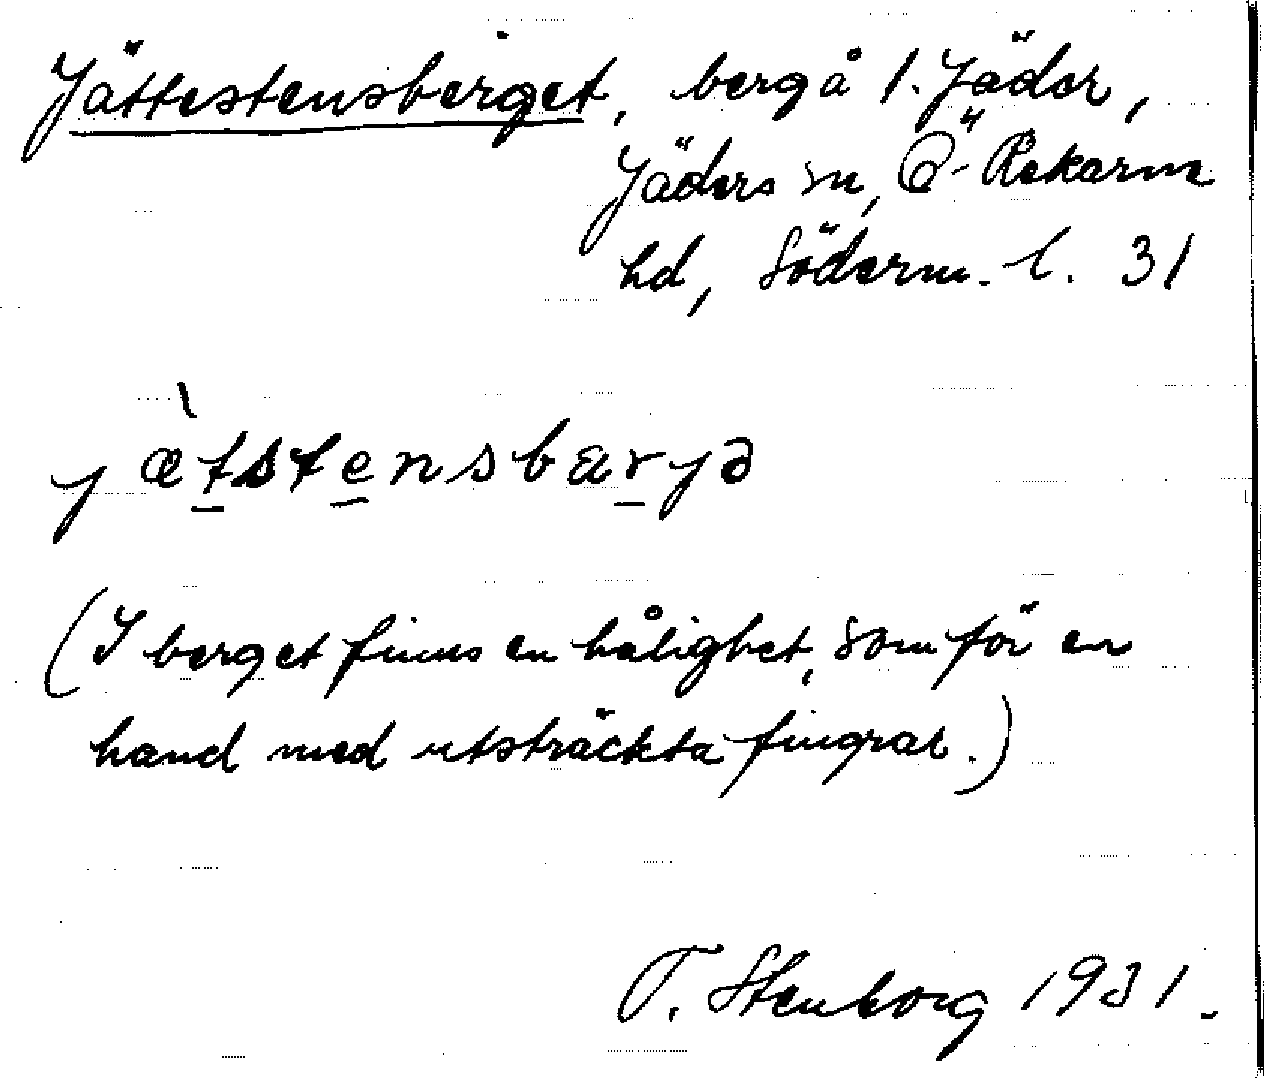 Jättestensberget, berg å 1. Jäder,
Jäders sn, Ö-Rekarne
hd, Söderm. l. 31
jæ̀tstensbærjə
(I berget finns en hålighet, som för en
hand med utsträckta fingrar.)
T. Stenborg 1931.